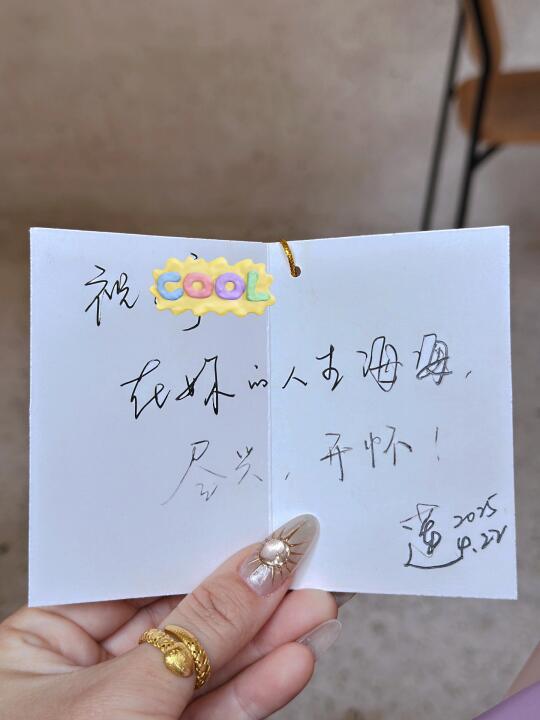 祝 COOL
在妳的人生海海,
尽兴,开怀!
莲 2025
4.22